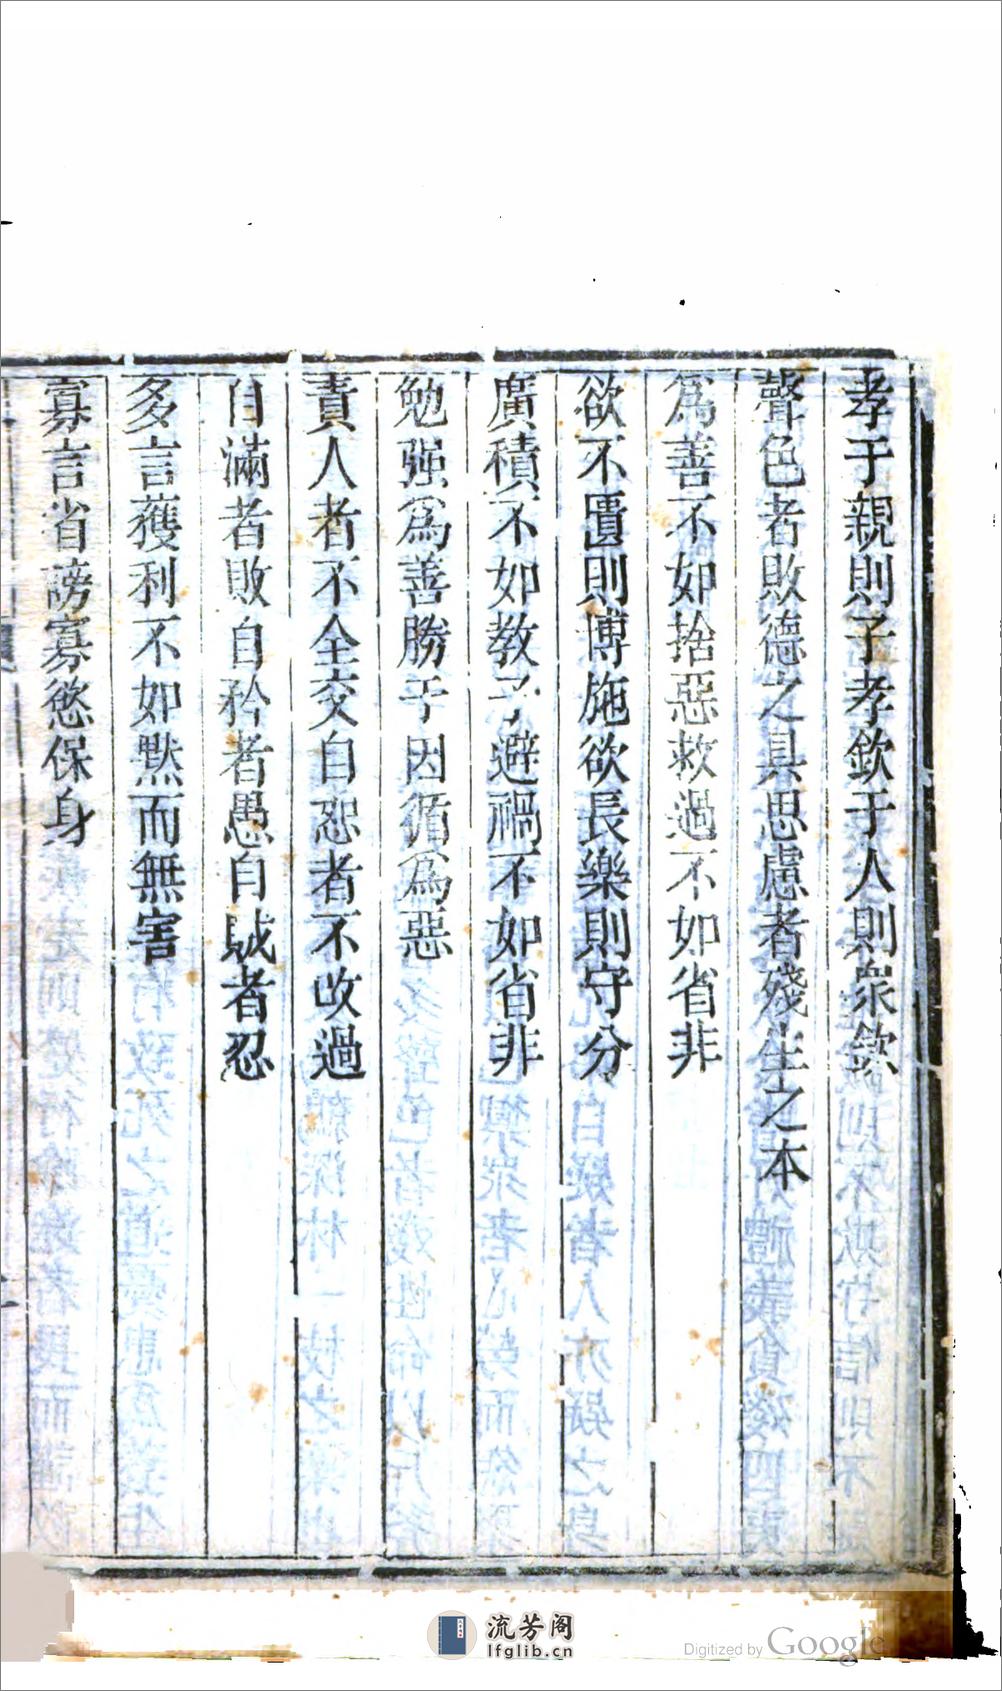 孝于親則子孝欽于人則衆欽
聲色者敗德之具思慮者殘生之本
爲善不如捨惡救過不如省非
欲不匱則博施欲長樂則守分
廣積不如教子避禍不如省非
勉强爲善勝于因循爲惡
責人者不全交自恕者不改過
自滿者敗自矜者愚自賊者忍
多言獲利不如默而無害
寡言省謗寡慾保身
流芳阁
lfglib.cn
Digitized by Google